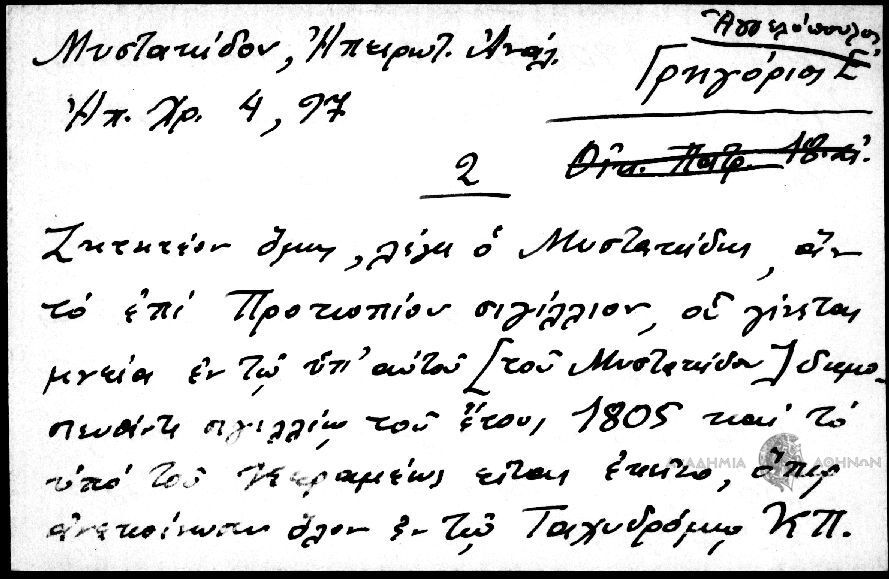 Ἀγγελόπουλος
Μυστακίδου, Ἠπειρωτ. Ἀνάλ.
Γρηγόριος Ε΄
Ἠπ. Χρ. 4, 97
Οἰκ. Πατρ. 18
2
Ζητητέον ὅμως, λέγει ὁ Μυστακίδης, ἂν
τό ἐπί Προκοπίου σιγίλλιον, οὗ γίνεται
μνεία ἐν τῷ ὑπ' αὐτοῦ [τοῦ Μυστακίδου] δημο-
σιευθέντι σιγιλλίῳ τοῦ ἔτους 1805 καί τό
ὑπό τοῦ Κεραμέως εἶναι ἐκεῖνο, ὅπερ
ἀνεκοίνωσεν ὅλον ἐν τῷ Ταχυδρόμῳ ΚΠ.
ΑΚΑΔΗΜΙΑ ΑΘΗΝΩΝ